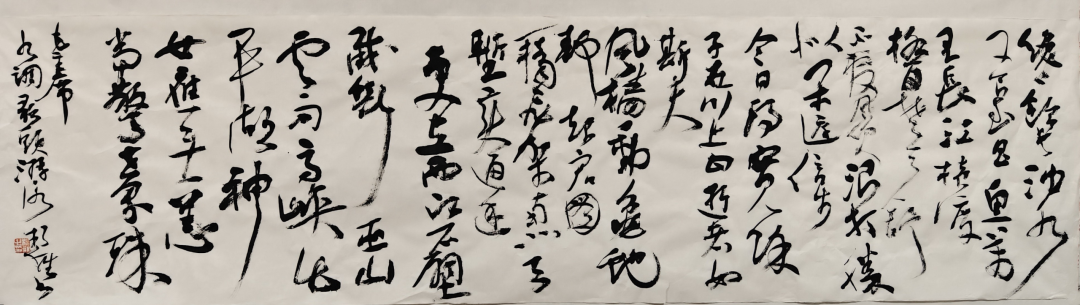 才饮长沙水
又食武昌鱼万
里长江横渡
极目楚天舒
不管风吹浪打胜
似闲庭信步
今日得宽余
子在川上曰逝者如
斯夫
风樯動龟蛇
静起宏圖
一桥飞架南北天
堑变通途
更立西江石壁
截断巫山
云雨高峡出
平湖神
女应无恙
当惊世界殊
毛主席
水调歌头游泳